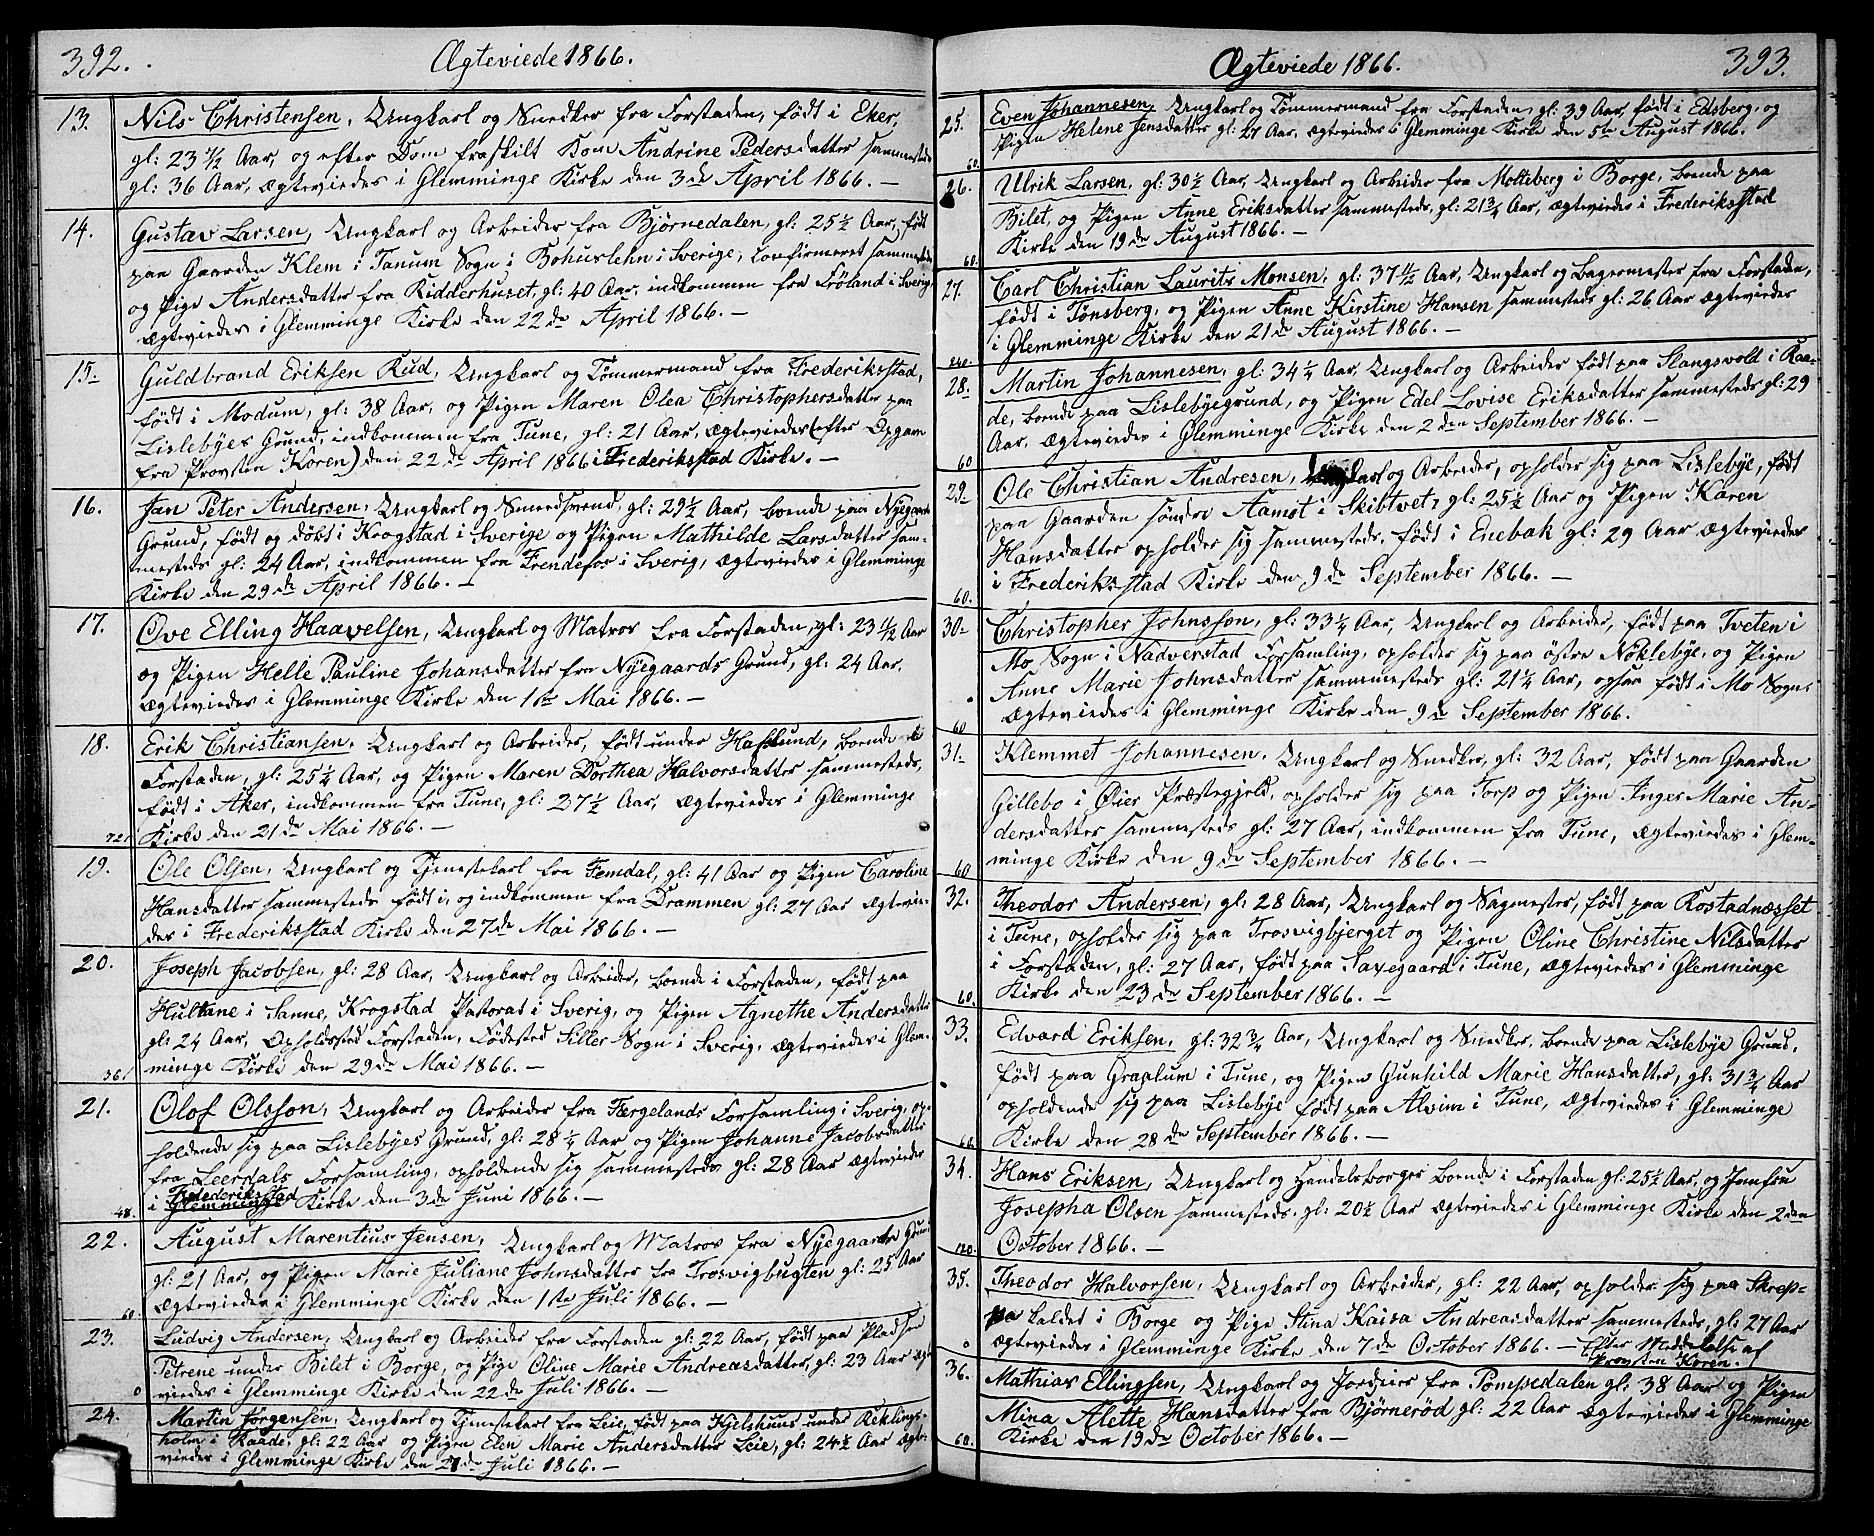 392.
Ægteviede 1866.
13. Nils Christensen, Ungkarl og Snedker fra Forstaden, født i Eker,
gl: 23 ½ Aar, og efter Dom fraskilt Andrine Pedersdatter sammesteds
gl: 36 Aar, ægteviedes i Glemminge Kirke den 3de April 1866. —
14. Gustav Larsen, Ungkarl og Arbeider fra Bjørnedalen, gl: 25 ½ Aar, født
paa Gaarden Klem i Tanum Sogn i Bohuslehn i Sverige, confirmeret sammesteds
og Pige Andersdatter fra Ridderhuset, gl: 40 Aar, indkommen fra Fröland i Sverig,
ægteviedes i Glemminge Kirke den 22de April 1866. —
15. Guldbrand Eriksen Rud, Ungkarl og Tømmermand fra Frederiksstad,
født i Modum, gl: 38 Aar, og Pigen Maren Olea Christophersdatter paa
Lislebyes Grund, indkommen fra Tune, gl: 21 Aar, ægteviedes (efter Opgave
fra Provsten Koren) den 22de April 1866 i Frederiksstad Kirke. —
16. Jan Peter Andersen, Ungkarl og Smedsvend, gl: 29 ½ Aar, boende paa Nyegaards
Grund, født og døbt i Krogstad i Sverige og Pigen Mathilde Larsdatter sam-
mesteds gl: 24 Aar, indkommen fra Frendefos i Sverig, ægteviedes i Glemminge
Kirke den 29de April 1866. —
17. Ove Elling Haavelsen, Ungkarl og Matros fra Forstaden, gl: 23 11/12 Aar
og Pigen Helle Pauline Johansdatter fra Nyegaards Grund, gl: 24 Aar,
ægteviedes i Glemminge Kirke den 1ste Mai 1866. —
18. Erik Christiansen, Ungkarl og Arbeider, født under Haslund, boende i
Forstaden, gl: 25 ¼ Aar, og Pigen Maren Dorthea Halvorsdatter sammesteds,
født i Aker, indkommen fra Tune, gl: 27 ½ Aar, ægteviedes i Glemminge
72 Kirke den 21de Mai 1866. —
19. Ole Olsen, Ungkarl og Tjenestekarl fra Femdal, gl: 41 Aar og Pigen Caroline
Hansdatter sammesteds født i, og indkommen fra Drammen gl: 27 Aar ægtevie-
des i Frederiksstad Kirke den 27de Mai 1866. —
20. Joseph Jacobsen, gl: 28 Aar, Ungkarl og Arbeider, boende i Forstaden, født paa
Hultane i Sanne, Krogstad Pastorat i Sverig, og Pigen Agnethe Andersdatter
gl: 24 Aar, Opholdssted Forstaden, Fødested Siller Sogn i Sverig, ægteviedes i Glem-
36 minge Kirke den 29de Mai 1866. —
21. Olof Olsson, Ungkarl og Arbeider fra Færgelands Forsamling i Sverig, op-
holdende sig paa Lislebyes Grund, gl: 28 ¼ Aar og Pigen Johanne Jacobsdatter
fra Leerdals Forsamling, opholdende sig sammesteds gl: 28 Aar ægteviedes
Frederiksstad
48 i Glemminge Kirke den 3de Juni 1866. —
22. August Marentius Jensen, Ungkarl og Matros fra Nyegaards Grund
gl: 21 Aar, og Pigen Marie Juliane Johnsdatter fra Trosvigbugten gl: 25 Aar
60 ægteviedes i Glemminge Kirke den 1ste Juli 1866. —
23. Ludvig Andersen, Ungkarl og Arbeider fra Forstaden gl: 22 Aar, født paa Pladsen
Petrene under Bilet i Borge, og Pige Oline Marie Andreasdatter, gl: 23 Aar ægte
0 viedes i Glemminge Kirke den 22de Juli 1866. —
24. Martin Jørgensen, Ungkarl og Tjenestekarl fra Leie, født paa Kjelshuus under Reklings-
holm i Raade, gl: 22 Aar og Pigen Elen Marie Andersdatter Leie, gl: 24 ½ Aar ægte-
viedes i Glemminge Kirke den Juli 1866. —
Ægteviede 1866.
393.
25. Even Johannesen, Ungkarl og Tømmermand fra Forstaden, gl: 39 Aar, født i Edsberg, og
Pigen Helene Jensdatter gl: 27 Aar, ægteviedes i Glemminge Kirke den 5te August 1866.
60.
26. Ulrik Larsen, gl: 30 ½ Aar, Ungkarl og Arbeider fra Molteberg i Borge, boende paa
Bilet, og Pigen Anne Eriksdatter sammesteds, gl: 21 ¾ Aar, ægteviedes i Frederiksstad
60. Kirke den 19de August 1866. —
27. Carl Christian Laurits Monsen, gl: 37 11/12 Aar, Ungkarl og Bagermester fra Forstaden,
født i Tønsberg, og Pigen Anne Kirstine Hansen sammesteds gl: 26 Aar ægteviedes
i Glemminge Kirke den 21de August 1866. —
240.
28. Martin Johannesen, gl: 34 ¼ Aar, Ungkarl og Arbeider født paa Slangsvold i Raa-
de, boende paa Lislebyegrund, og Pigen Edel Lovise Eriksdatter sammesteds gl: 29
Aar, ægteviedes i Glemminge Kirke den 2den September 1866. —
60
29. Ole Christian Andresen, Ungkarl og Arbeider, opholder sig paa Lislebye, født
paa Gaarden søndre Aamot i Skibtvet, gl: 25 ½ Aar og Pigen Karen
Hansdatter opholder sig sammesteds, født i Enebak gl: 29 Aar ægteviedes
60. i Frederiksstad Kirke den 9de September 1866. —
30. Christopher Johnsson, gl: 33 ¼ Aar, Ungkarl og Arbeider, født paa Tveten i
Mo Sogn i Nadverstad Forsamling, opholder sig paa østre Nøklebye, og Pigen
Anne Marie Johnsdatter sammesteds gl: 21 ¼ Aar, ogsaa født i Mo Sogn,
60 ægteviedes i Glemminge Kirke den 9de September 1866. —
31. Klemmet Johannesen, Ungkarl og Snedker, gl: 32 Aar, født paa Gaarden
Gillebo i Øier Præstegjeld, opholder sig paa Torp og Pigen Inger Marie An-
dersdatter sammesteds gl: 27 Aar, indkommen fra Tune, ægteviedes i Glem-
60 minge Kirke den 9de September 1866. —
32. Theodor Andersen, gl: 28 Aar, Ungkarl og Sagmester, født paa Rostadnæsset
i Tune, opholder sig paa Trosvigbjerget og Pigen Oline Christine Nilsdatter
i Forstaden, gl: 27 Aar, født paa Saxegaard i Tune, ægteviedes i Glemminge
60. Kirke den 23de September 1866. —
33. Edvard Eriksen, gl: 32 ¾ Aar, Ungkarl og Snedker, boende paa Lislebye Grund,
født paa Graalum i Tune, og Pigen Gunhild Marie Hansdatter, gl: 31 ¾ Aar
opholdende sig paa Lislebye født paa Alvim i Tune, ægteviedes i Glemminge
60. Kirke den 28de September 1866. —
34. Hans Eriksen, Ungkarl og Handelsborger boende i Forstaden gl: 25 ½ Aar, og Jomfru
Josepha Olsen sammesteds. gl: 20 ½ Aar ægteviedes i Glemminge Kirke den 2den
120. October 1866. —
35. Theodor Halvorsen, Ungkarl og Arbeider, gl: 22 Aar, opholder sig paa Skrep-
pa kaldet i Borge og Pige Stina Kaisa Andreasdatter sammesteds, gl: 27 Aar
0 ægteviedes i Glemminge Kirke den 7de October 1866. — Efter Meddelelse af
Provsten Koren.
36. Mathias Ellingsen, Ungkarl og Jordeier fra Pompedalen gl: 38 Aar og Pigen
Mina Alette Hansdatter fra Bjørnerød gl: 22 Aar ægteviedes i Glemminge
60. Kirke den 19de October 1866. —